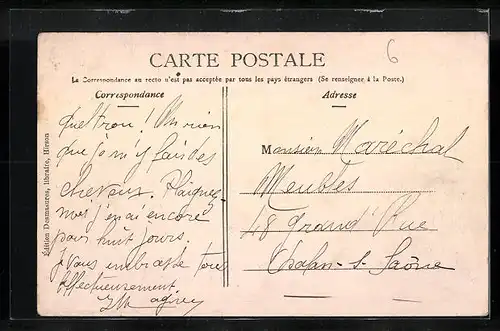 CARTE POSTALE
La Correspondance au recto n'est pas acceptée par tous les pays étrangers (Se renseigner à la Poste.)
Correspondance
Adresse
6
Édition Desmasures, libraire, Hirson
quel trou !
que j'm'y fais des
cheveux. Plaignez
moi, j'en ai encore
pour huit jours.
Je vous embrasse tous
affectueusement
Monsieur Maréchal
Meubles
48 Grand' Rue
Chalon-s-Saône